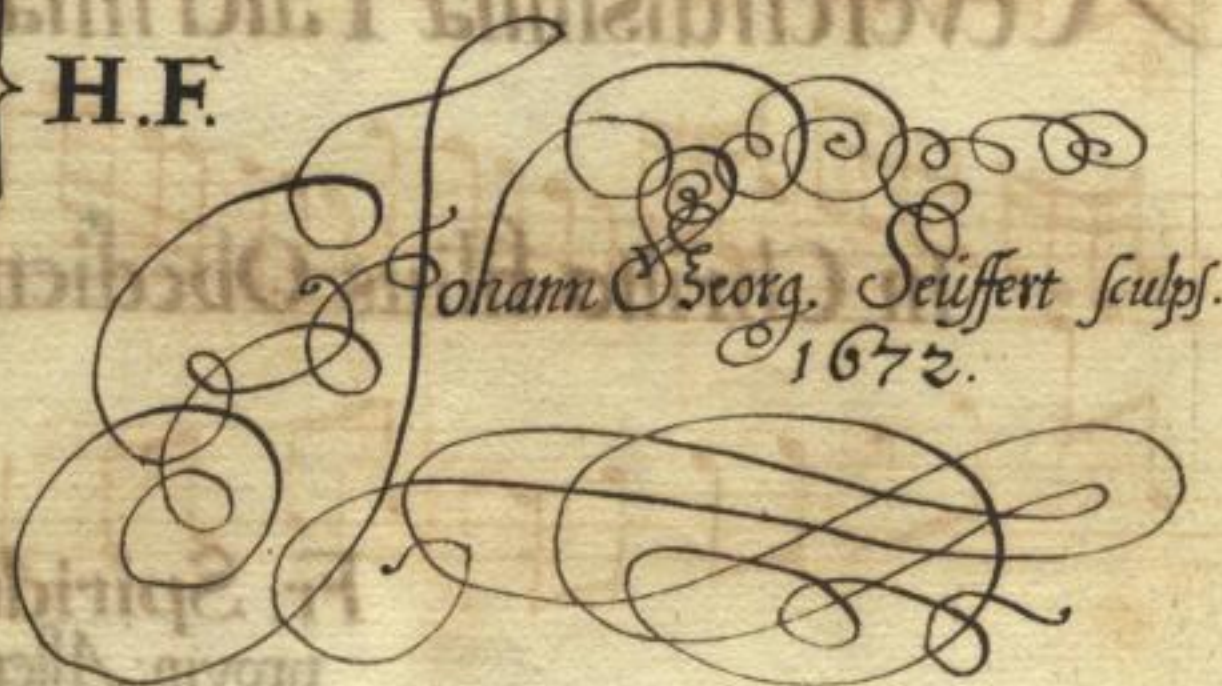 H.F.
Johann Georg. Seüffert sculps.
1672.